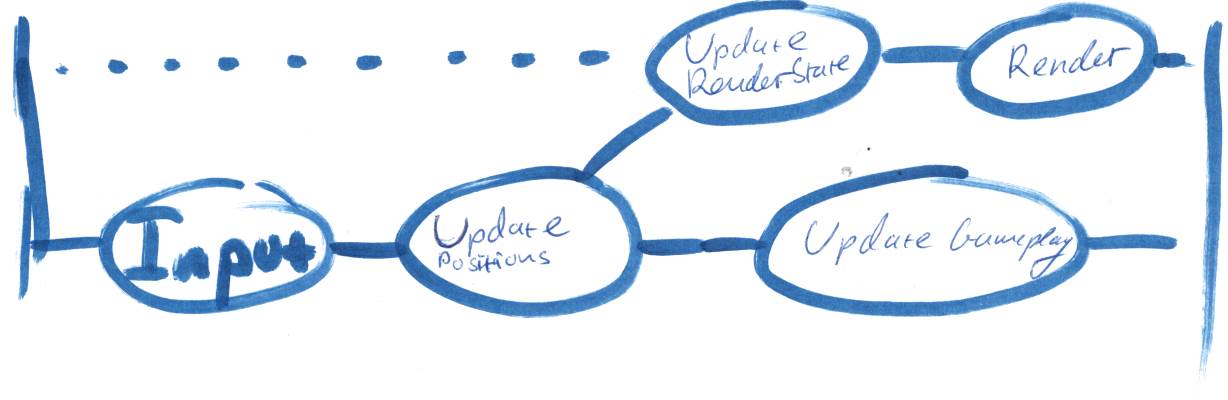 Update
RenderState
Render
Input
Update
Positions
Update Gameplay